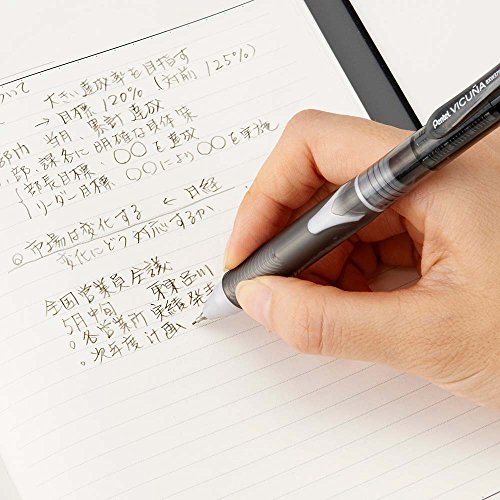 ついて
大きい達成率を目指す
→ 目標 120% (対前 125%)
当月、累計 達成
部、課名に 明確な具体策
部長目標、〇〇を達成
リーダー目標 〇〇により〇〇を実施
◎ 市場は変化する ← 日経
変化にどう対応するか
全国営業員会議
5月中旬 東京品川
。各営業所 実績発表
。次年度計画
Pentel VICUÑA